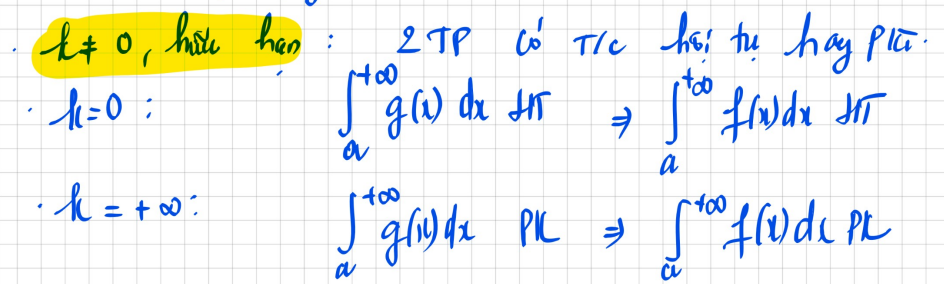 · k ≠ 0, hữu hạn : 2 TP có T/c hội tụ hay PKì.
· k = 0 : ∫ₐ⁺∞ g(x) dx HT ⇒ ∫ₐ⁺∞ f(x) dx HT
· k = +∞ : ∫ₐ⁺∞ g(x) dx PK ⇒ ∫ₐ⁺∞ f(x) dx PK